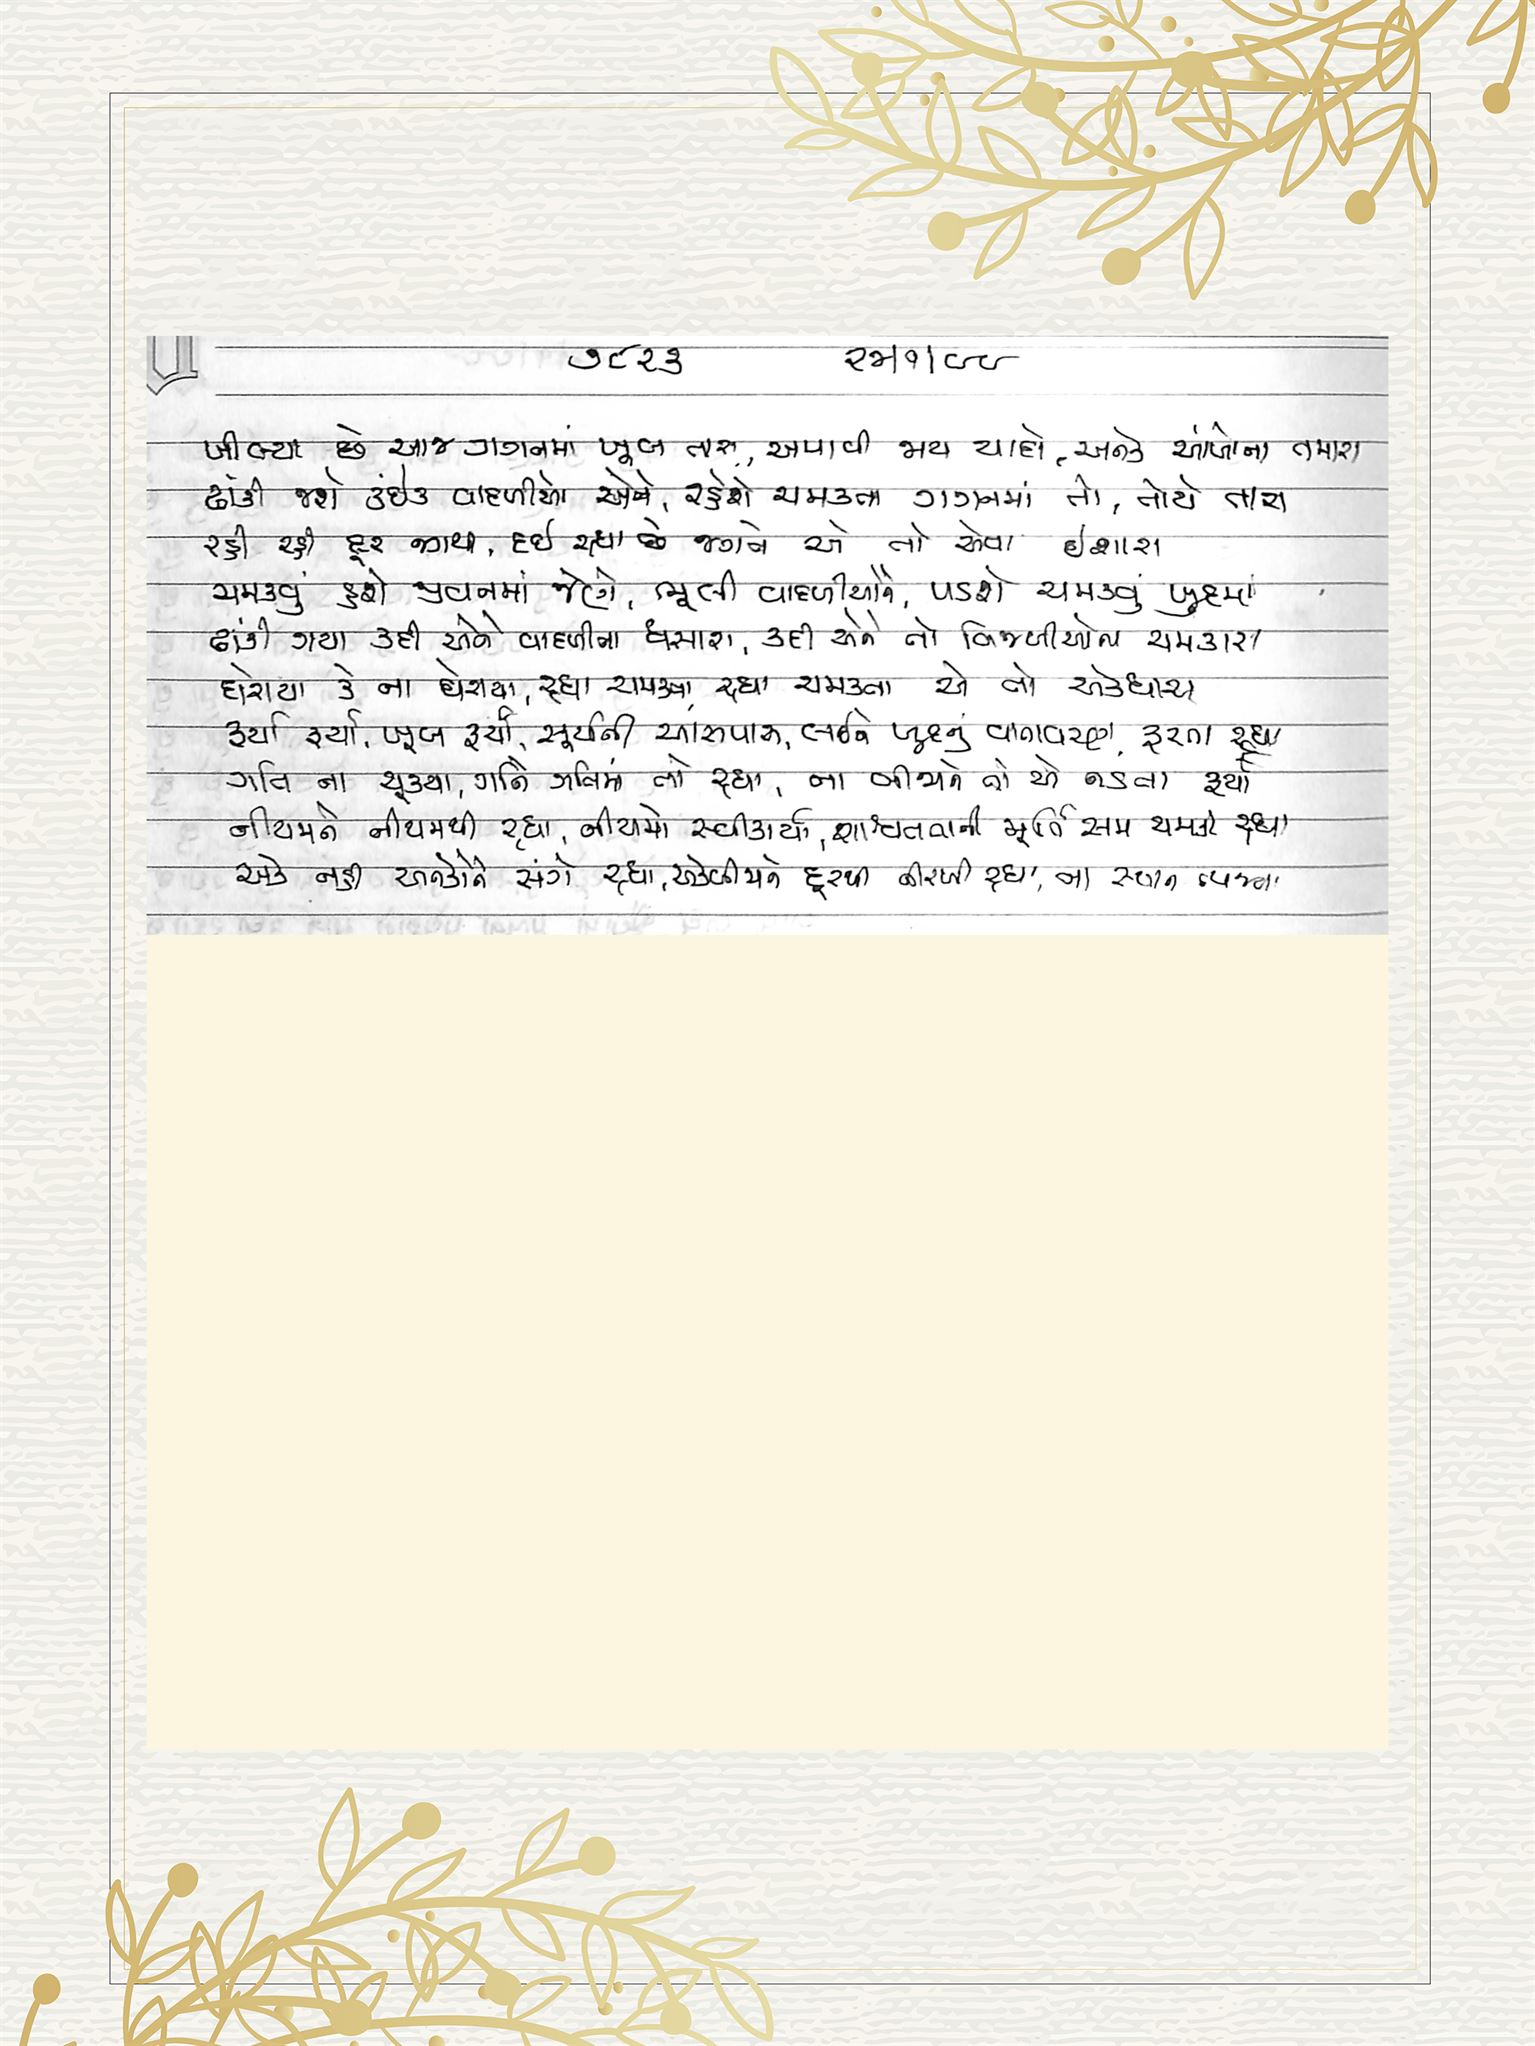 ૭૯૨૩ ૨૫/૧/૯૯
ખીલ્યા છે આજ ગગનમાં ખૂબ તારા, અપાવી જાય યાદો, અનેક આંખોના તમારા
ઢાંકી જશે કંઈક વાદળીયો એને, રહેશે ચમકતા ગગનમાં તો, તોયે તારા
રહી રહી દૂર આથી, દઈ રહ્યા છે જગને એ તો એવા ઈશારા
ચમકવું હશે જીવનમાં જેણે, ભૂલી વાદળીયોને, પડશે ચમકવું ખુદમાં
ઢાંકી ગયા કદી એને વાદળીના ધસારા, કદી એને તો વિજળીઓના ચમકારા
ઘેરાયા કે ના ઘેરાયા, રહ્યા ચમકતા રહ્યા ચમકતા એ તો એકધારા
ફર્યા ફર્યા, ખૂબ ફર્યા, સૂર્યની આસપાસ, લઈને ખુદનું વાતાવરણ, ફરતા રહ્યા
ગતિ ના ચૂક્યા, ગતિને ગતિમાં તો રહ્યા, ના બીજાને તો એ નડતા ફર્યા
નીયમને નીયમથી રહ્યા, નીયમો સ્વીકાર્યા, શાશ્વતતાની મૂર્તિ સમ ચમકી રહ્યા
એક નહી અનેકોને સંગે રહ્યા, એકબીજાને દૂરથી નીરખી રહ્યા, ના સ્થાન ત્યજ્યા